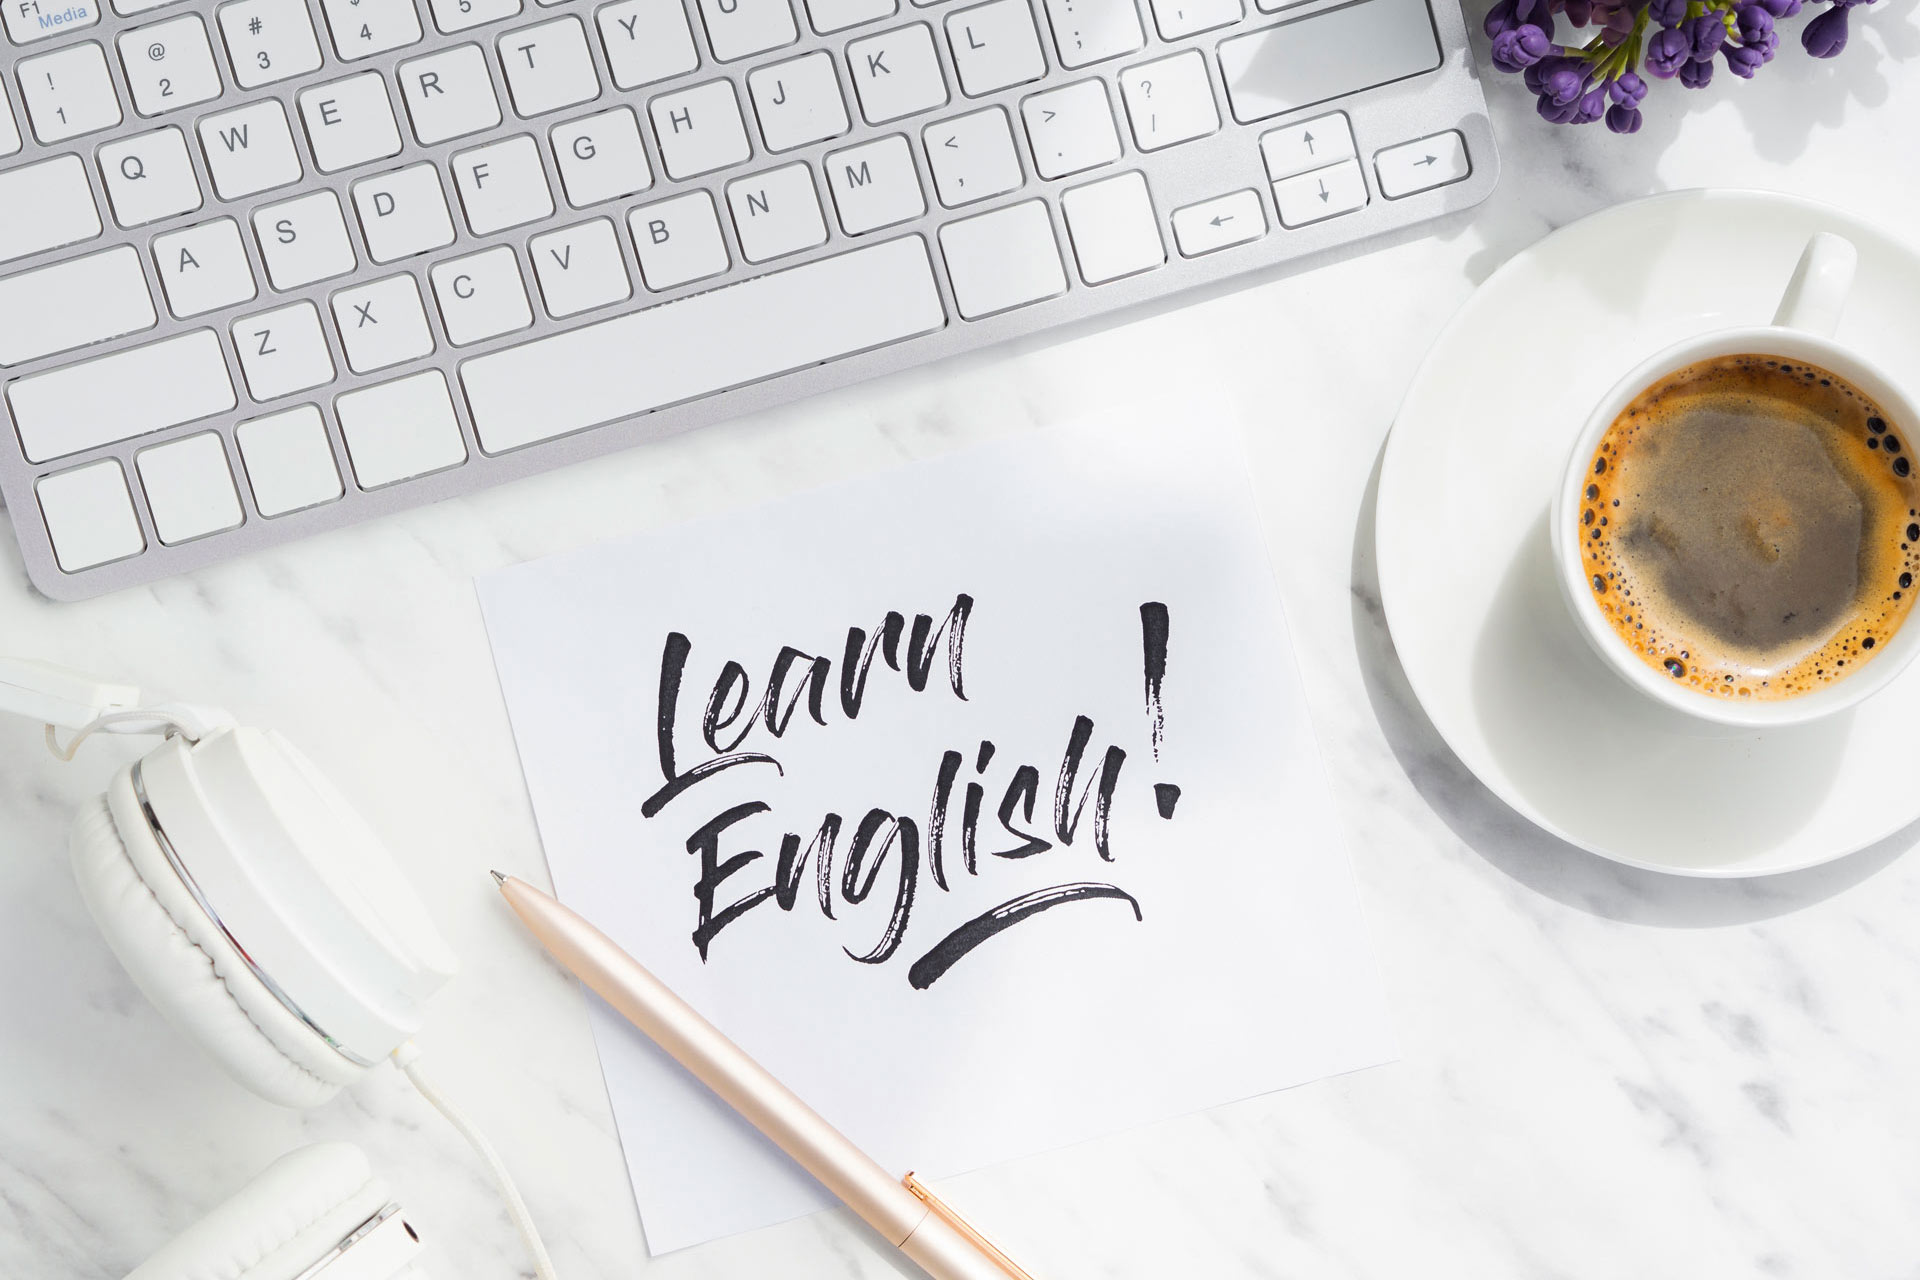 F1 Media
! @ # 
1 2 3 4 5
Q W E R T Y U
A S D F G H J K L : ;
Z X C V B N M < , > . ? /
Learn
English!